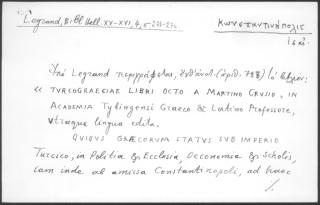 Legrand, Bibl Hell. XV-XVI, 4, σ
Κωνσταντινούπολις
16 αἰ.
Legrand περιγράφεται,
« TURCOGRAECIAE LIBRI OCTO A MARTINO CRUSIO, IN
ACADEMIA Tybingensi Graeco & Latino Professore,
utraque lingua edita.
QUIBUS GRAECORUM STATUS SUB IMPERIO
Turcico, in Politia & Ecclesia, Oeconomia & Scholis,
iam inde ab amissa Constantinopoli, ad haec